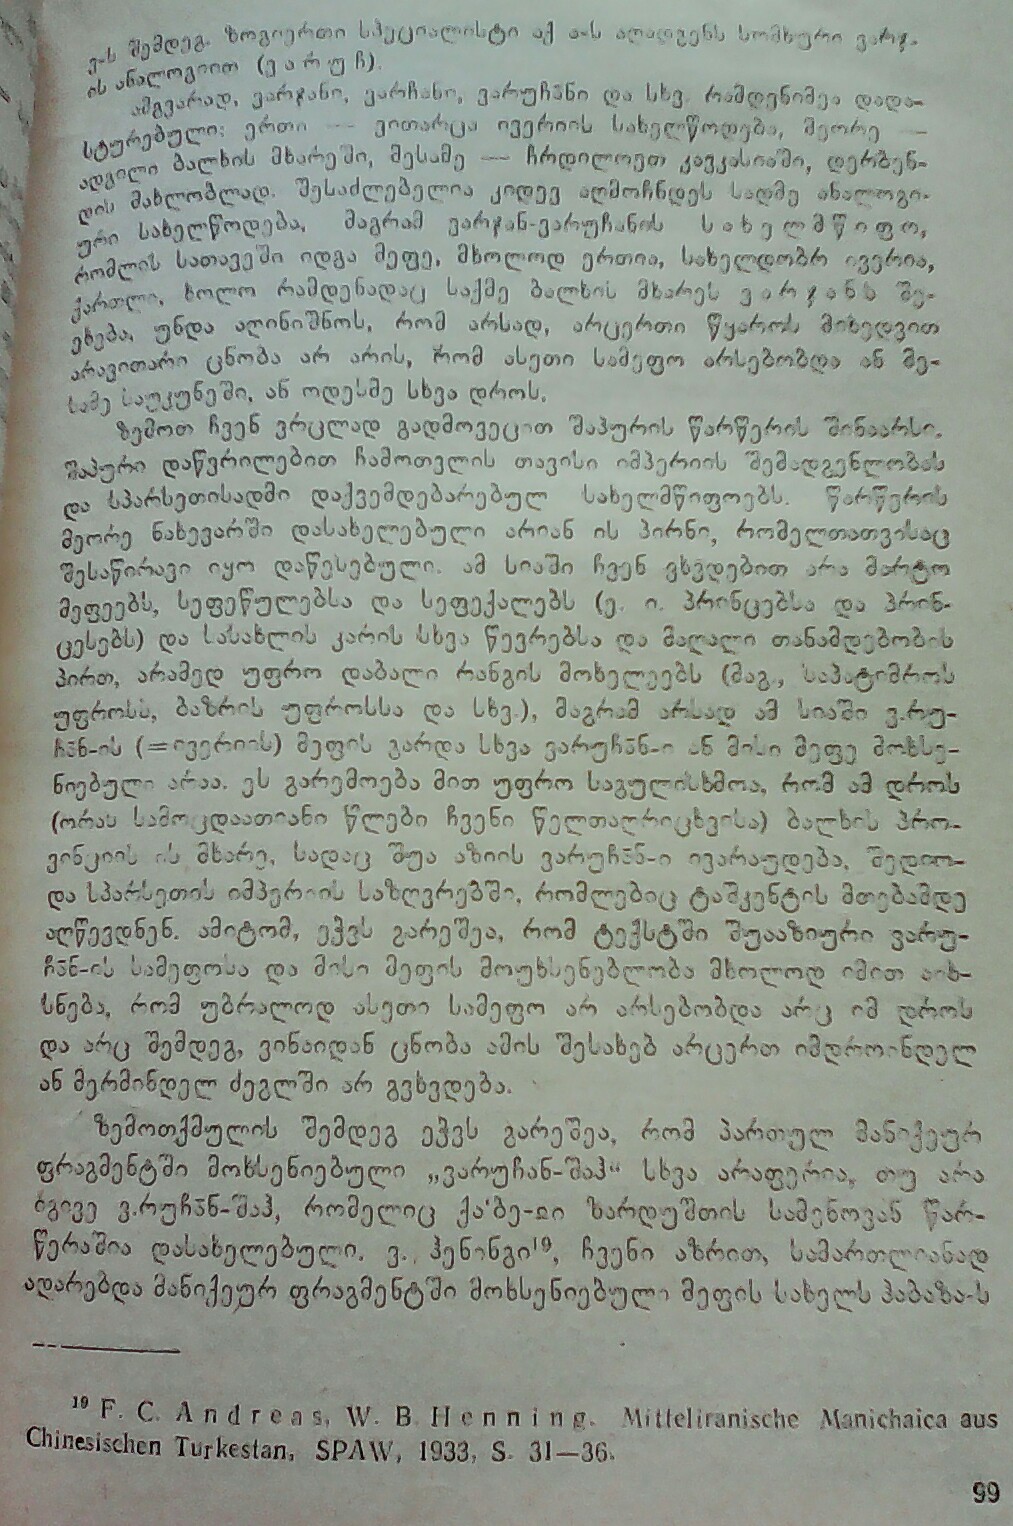 ვ-ს შემდეგ. ზოგიერთი სპეციალისტი აქ ა-ს აღადგენს სომხური ვარჯ-
ის ანალოგიით (ვ ა რ უ ჩ).
ამგვარად, ვარჯანი, ვარჩანი, ვარუჩა̄ნი და სხვ. რამდენიმეა დადა-
სტურებული: ერთი — ვითარცა ივერიის სახელწოდება, მეორე —
ადგილი ბალხის მხარეში, მესამე — ჩრდილოეთ კავკასიაში, დერბენ-
დის მახლობლად. შესაძლებელია კიდევ აღმოჩნდეს სადმე ანალოგი-
ური სახელწოდება, მაგრამ ვარჯან-ვარუჩანის ს ა ხ ე ლ მ წ ი ფ ო,
რომლის სათავეში იდგა მეფე, მხოლოდ ერთია, სახელდობრ ივერია,
ქართლი, ხოლო რამდენადაც საქმე ბალხის მხარეს ვ ა რ ჯ ა ნ ს შე-
ეხება, უნდა აღინიშნოს, რომ არსად, არცერთი წყაროს მიხედვით
არავითარი ცნობა არ არის, რომ ასეთი სამეფო არსებობდა ან მე-
სამე საუკუნეში, ან ოდესმე სხვა დროს.
ზემოთ ჩვენ ვრცლად გადმოვეცით შაპურის წარწერის შინაარსი.
შაპური დაწვრილებით ჩამოთვლის თავისი იმპერიის შემადგენლობას
და სპარსეთისადმი დაქვემდებარებულ სახელმწიფოებს. წარწერის
მეორე ნახევარში დასახელებული არიან ის პირნი, რომელთათვისაც
შესაწირავი იყო დაწესებული. ამ სიაში ჩვენ ვხვდებით არა მარტო
მეფეებს, სეფეწულებსა და სეფექალებს (ე. ი. პრინცებსა და პრინ-
ცესებს) და სასახლის კარის სხვა წევრებსა და მაღალი თანამდებობის
პირთ, არამედ უფრო დაბალი რანგის მოხელეებს (მაგ., საპატიმროს
უფროსს, ბაზრის უფროსსა და სხვ.), მაგრამ არსად ამ სიაში ვ.რუ-
ჩა̄ნ-ის (=ივერიის) მეფის გარდა სხვა ვარუჩა̄ნ-ი ან მისი მეფე მოხსე-
ნიებული არაა. ეს გარემოება მით უფრო საგულისხმოა, რომ ამ დროს
(ორას სამოცდაათიანი წლები ჩვენი წელთაღრიცხვისა) ბალხის პრო-
ვინციის ის მხარე, სადაც შუა აზიის ვარუჩა̄ნ-ი ივარაუდება, შედიო-
და სპარსეთის იმპერიის საზღვრებში, რომლებიც ტაშკენტის მთებამდე
აღწევდნენ. ამიტომ, ეჭვს გარეშეა, რომ ტექსტში შუააზიური ვარუ-
ჩა̄ნ-ის სამეფოსა და მისი მეფის მოუხსენებლობა მხოლოდ იმით აიხ-
სნება, რომ უბრალოდ ასეთი სამეფო არ არსებობდა არც იმ დროს
და არც შემდეგ, ვინაიდან ცნობა ამის შესახებ არცერთ იმდროინდელ
ან მერმინდელ ძეგლში არ გვხვდება.
ზემოთქმულის შემდეგ ეჭვს გარეშეა, რომ პართულ მანიქეურ
ფრაგმენტში მოხსენიებული „ვარუჩან-შაჰ“ სხვა არაფერია, თუ არა
იგივე ვ.რუჩა̄ნ-შაჰ, რომელიც ქა'ბე-ჲი ზარდუშთის სამენოვან წარ-
წერაშია დასახელებული. ვ. ჰენინგი¹⁹, ჩვენი აზრით, სამართლიანად
ადარებდა მანიქეურ ფრაგმენტში მოხსენიებული მეფის სახელს ჰაბაზა-ს
¹⁹ F. C. A n d r e a s, W. B. H e n n i n g. Mitteliranische Manichaica aus
Chinesischen Turkestan, SPAW, 1933, S. 31—36.
99